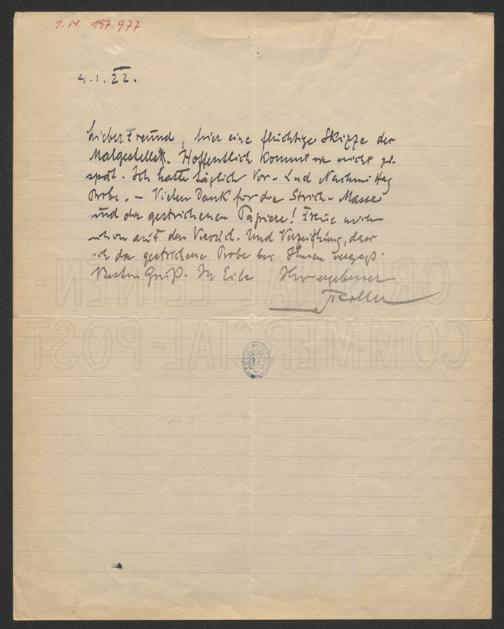 J.N. 197.977
4.1.22.
Lieber Freund, hier eine flüchtige Skizze der
Malgestelle. Hoffentlich kommt sie nicht zu
spät. Ich hatte täglich Vor- und Nachmittag
Probe. - Vielen Dank für die Streich-Masse
und die gestrichenen Papiere! Freue mich
schon auf den Versuch. Und Verzeihung, dass
ich die gestrichene Probe bei Ihnen vergass.
Besten Gruß. In Eile Ihr ergebener
ORIGINAL LEINEN
COMMERCIAL-POST